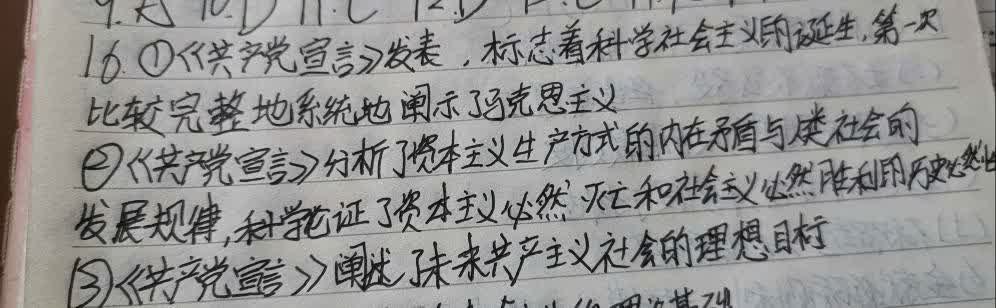 16.①《共产党宣言》发表，标志着科学社会主义的诞生,第一次
比较完整地系统地阐示了马克思主义
②《共产党宣言》分析了资本主义生产方式的内在矛盾与人类社会的
发展规律,科学论证了资本主义必然灭亡和社会主义必然胜利的历史必然性
③《共产党宣言》阐述了未来共产主义社会的理想目标